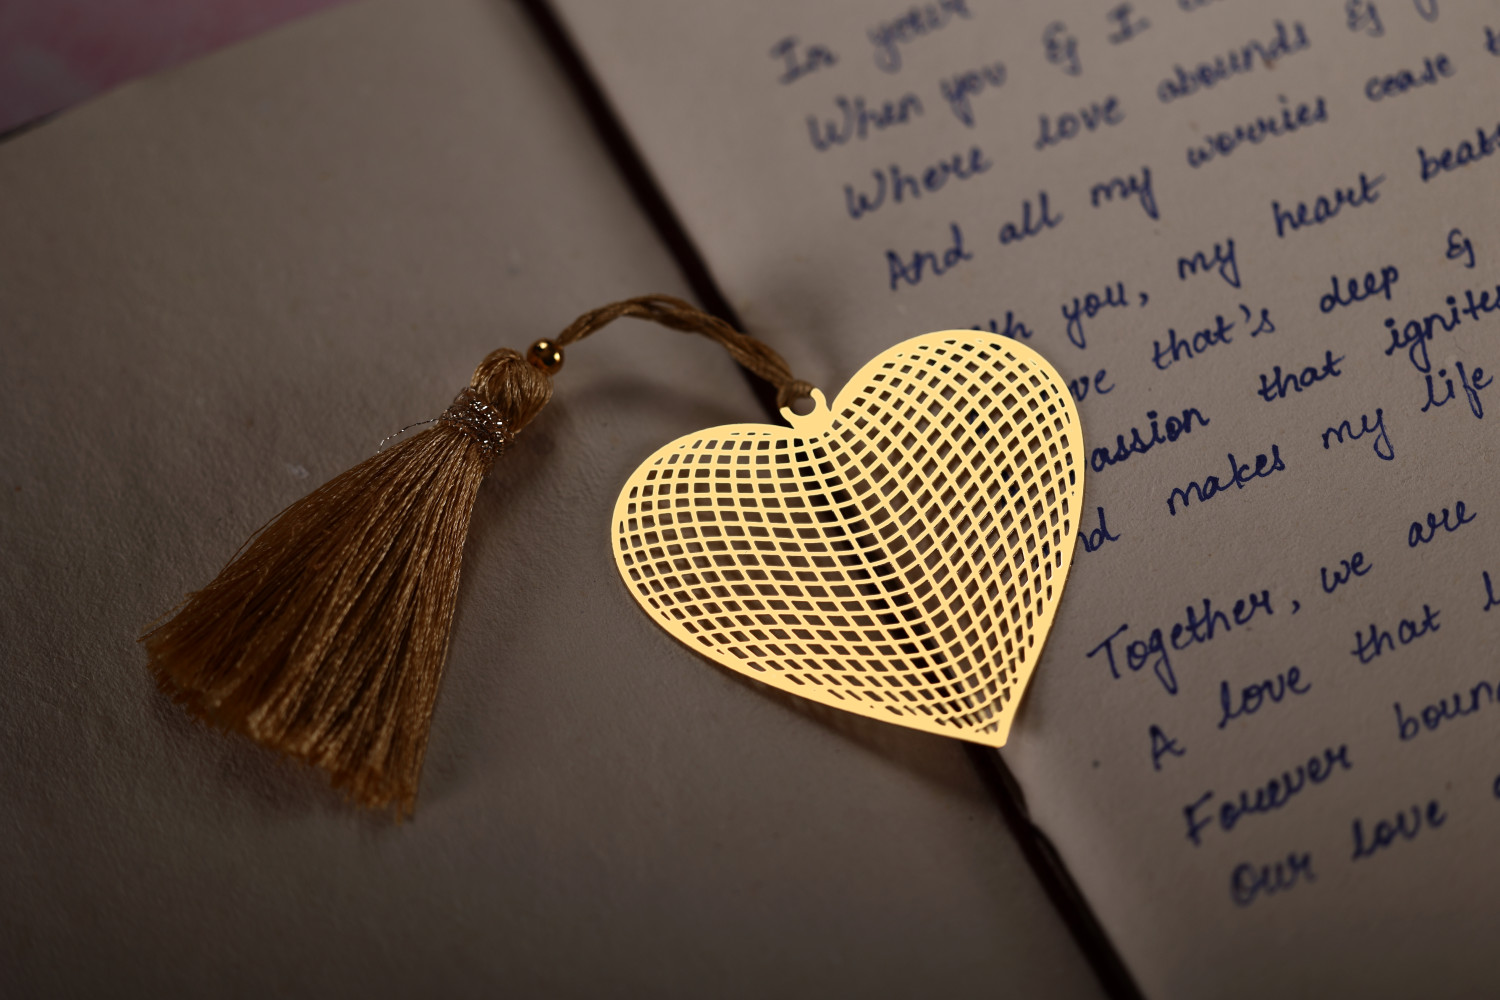 In your
When you & I
Where love abounds &
And all my worries cease
you, my heart beats
that's deep &
that ignites
makes my life
Together, we are
A love that
Forever
Our love